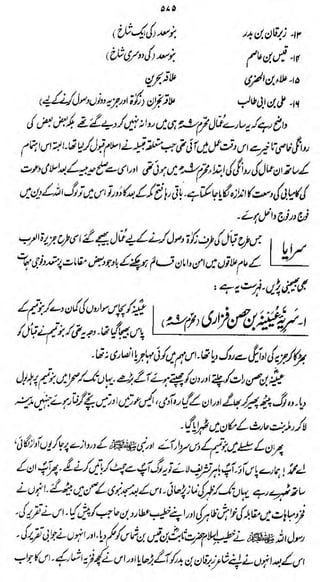 ۵۷۵
۱۳۔ زبرقان بن بدر بنو سعد (کی ایک شاخ)
۱۴۔ قیس بن عاصم بنو سعد (کی دوسری شاخ)
۱۵ علاء بن الحضرمی علاقہ بحرین
۱۶۔ علی بن ابی طالب علاقہ نجران (زکوٰۃ اور جزیہ دونوں وصول کرنے کے لیے)
واضح رہے کہ یہ سارے عمّال محرم ۹ھ ہی میں روانہ نہیں کر دیے گئے تھے بلکہ بعض بعض کی
روانگی خاصی تاخیر سے اس وقت عمل میں آئی تھی جب متعلقہ قبیلہ نے اسلام قبول کر لیا تھا۔ البتہ اس اہتمام
کے ساتھ ان عمال کی روانگی کی ابتدا محرم ۹ھ میں ہوئی تھی اور اسی سے صلح حدیبیہ کے بعد اسلامی دعوت
کی کامیابی کی وسعت کا اندازہ لگایا جا سکتا ہے۔ باقی رہا فتح مکہ کے بعد کا دور تو اس میں تو لوگ اللہ کے دین میں
فوج در فوج داخل ہوئے۔
سرایا جس طرح قبائل کی طرف زکوٰۃ وصول کرنے کے لیے عمّال بھیجے گئے اسی طرح جزیرۃ العرب
کے عام علاقوں میں امن و امان قائم ہو چکنے کے باوجود بعض مقامات پر متعدد فوجی مہمات
بھی بھیجنی پڑیں۔ فہرست یہ ہے:
۱۔ سریۃ عیینہ بن حصن فزاری (محرم ۹ھ) عیینہ کو پچاس سواروں کی کمان دے کر بنو تمیم کے
پاس بھیجا گیا تھا۔ وجہ یہ تھی کہ بنو تمیم نے قبائل کو
بھڑکا کر جزیہ کی ادائیگی سے روک دیا تھا۔ اس مہم میں کوئی مہاجر یا انصاری نہ تھا۔
عیینہ بن حصن رات کو چلتے اور دن کو چھپتے ہوئے آگے بڑھے۔ یہاں تک کہ صحرا میں بنو تمیم پر ہلّہ بول
دیا۔ وہ لوگ پیٹھ پھیر کر بھاگے اور ان کے گیارہ آدمی، اکیس عورتیں اور تیس بچے گرفتار ہوئے جنہیں مدینہ
لا کر رملہ بنت حارث کے مکان میں ٹھہرایا گیا۔
پھر ان کے سلسلے میں بنو تمیم کے دس سردار آئے اور نبی ﷺ کے دروازے پر جا کر یوں آواز لگائی،
اے محمدؐ! ہمارے پاس آؤ۔ آپ باہر تشریف لائے تو یہ لوگ آپ سے چمٹ کر باتیں کرنے لگے۔ پھر آپ ان کے
ساتھ ٹھہرے رہے یہاں تک کہ ظہر کی نماز پڑھائی۔ اس کے بعد مسجد نبوی کے صحن میں بیٹھ گئے۔ انہوں نے
فخر و مباہات میں مقابلہ کی خواہش ظاہر کی اور اپنے خطیب عطارد بن حاجب کو پیش کیا۔ اس نے تقریر کی۔
رسول اللہ ﷺ نے خطیب اسلام حضرت ثابت بن قیس بن شماس کو حکم دیا، اور انہوں نے جوابی تقریر کی۔
اس کے بعد انہوں نے اپنے شاعر زبرقان بن بدر کو آگے بڑھایا اور اس نے کچھ فخریہ اشعار کہے۔ اس کا جواب